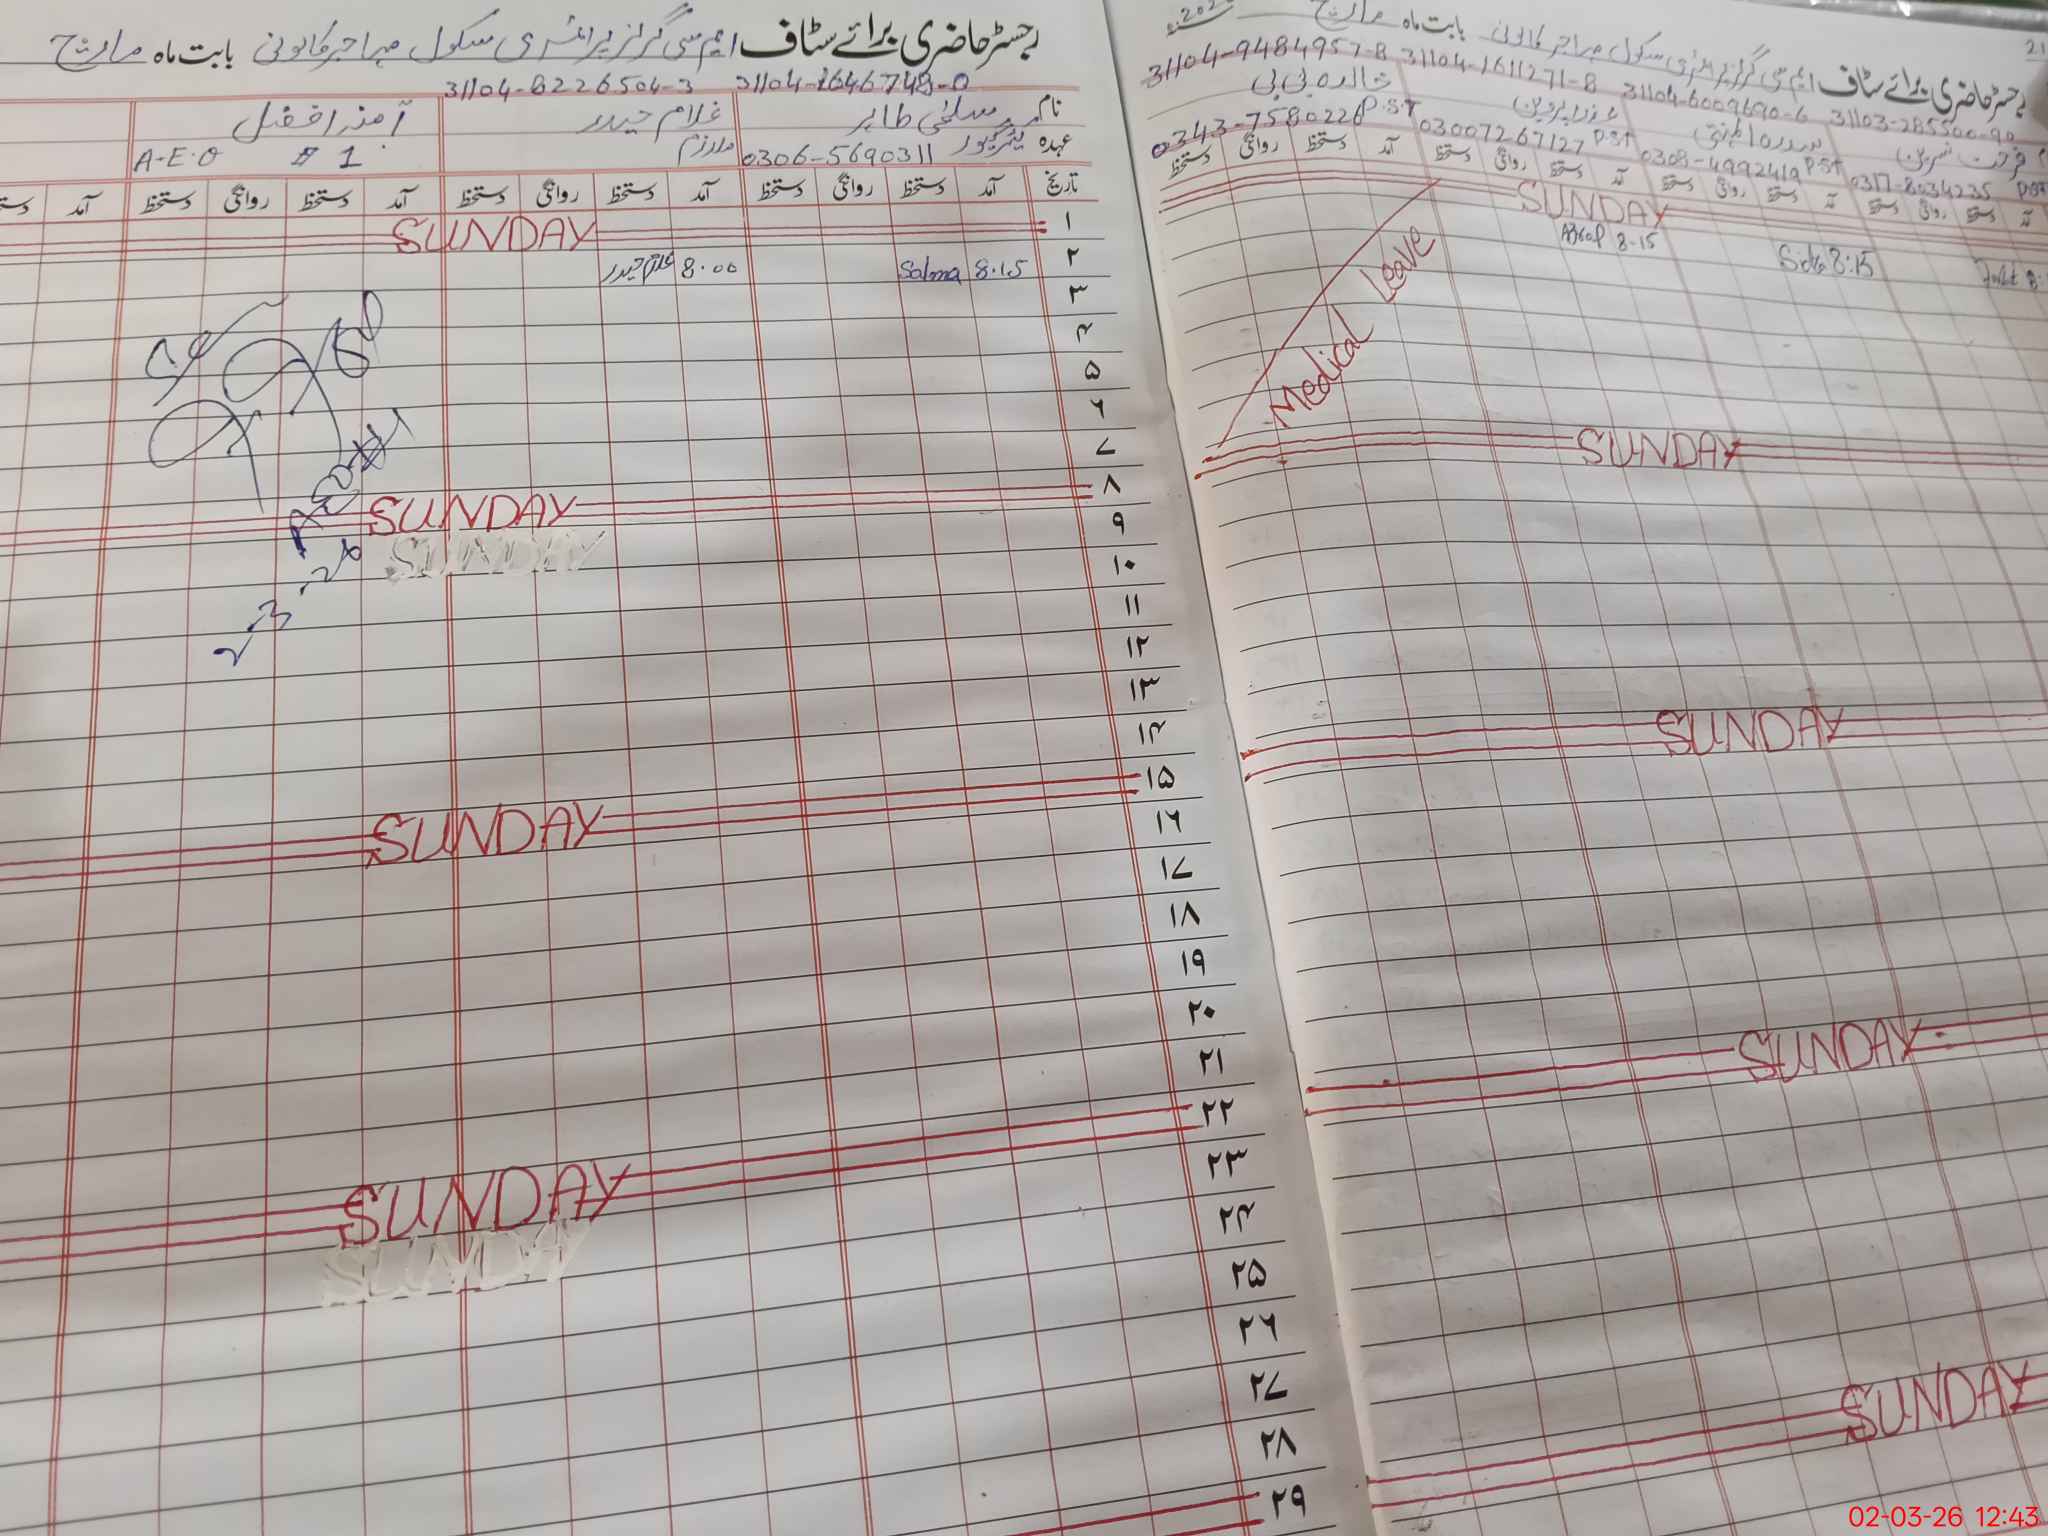 رجسٹر حاضری برائے سٹاف ایم سی گرلز پرائمری سکول مہاجر کالونی بابت ماہ مارچ
31104-1646748-0 31104-8226504-3
نام سلمٰی طاہر غلام حیدر
عہدہ 0306-5690311 ملازم A-E-O # 1
تاریخ آمد دستخط روانگی دستخط آمد دستخط روانگی دستخط آمد دستخط روانگی دستخط آمد
۱ SUNDAY
۲ 8.15 Salma 8.00 غلام حیدر
۳
۴
۵
۶
۷
۸ SUNDAY
۹ SUNDAY
۱۰
۱۱
۱۲
۱۳
۱۴
۱۵ SUNDAY
۱۶
۱۷
۱۸
۱۹
۲۰
۲۱
۲۲ SUNDAY
۲۳ SUNDAY
۲۴
۲۵
۲۶
۲۷
۲۸
۲۹
2-3-26
رجسٹر حاضری برائے سٹاف ایم سی گرلز پرائمری سکول مہاجر کالونی بابت ماہ مارچ
21
31104-9484957-8 31104-1611271-8 31104-6009690-6 31103-285500-90
خالدہ بی بی
P.ST P.ST P.ST
0343-7580226 03007267127 0308-4992419 0317-8034235
آمد دستخط روانگی دستخط آمد دستخط روانگی دستخط آمد دستخط روانگی دستخط آمد دستخط روانگی دستخط
SUNDAY
8-15
8:15
Medical Leave
SUNDAY
SUNDAY
SUNDAY
SUNDAY
02-03-26 12:43